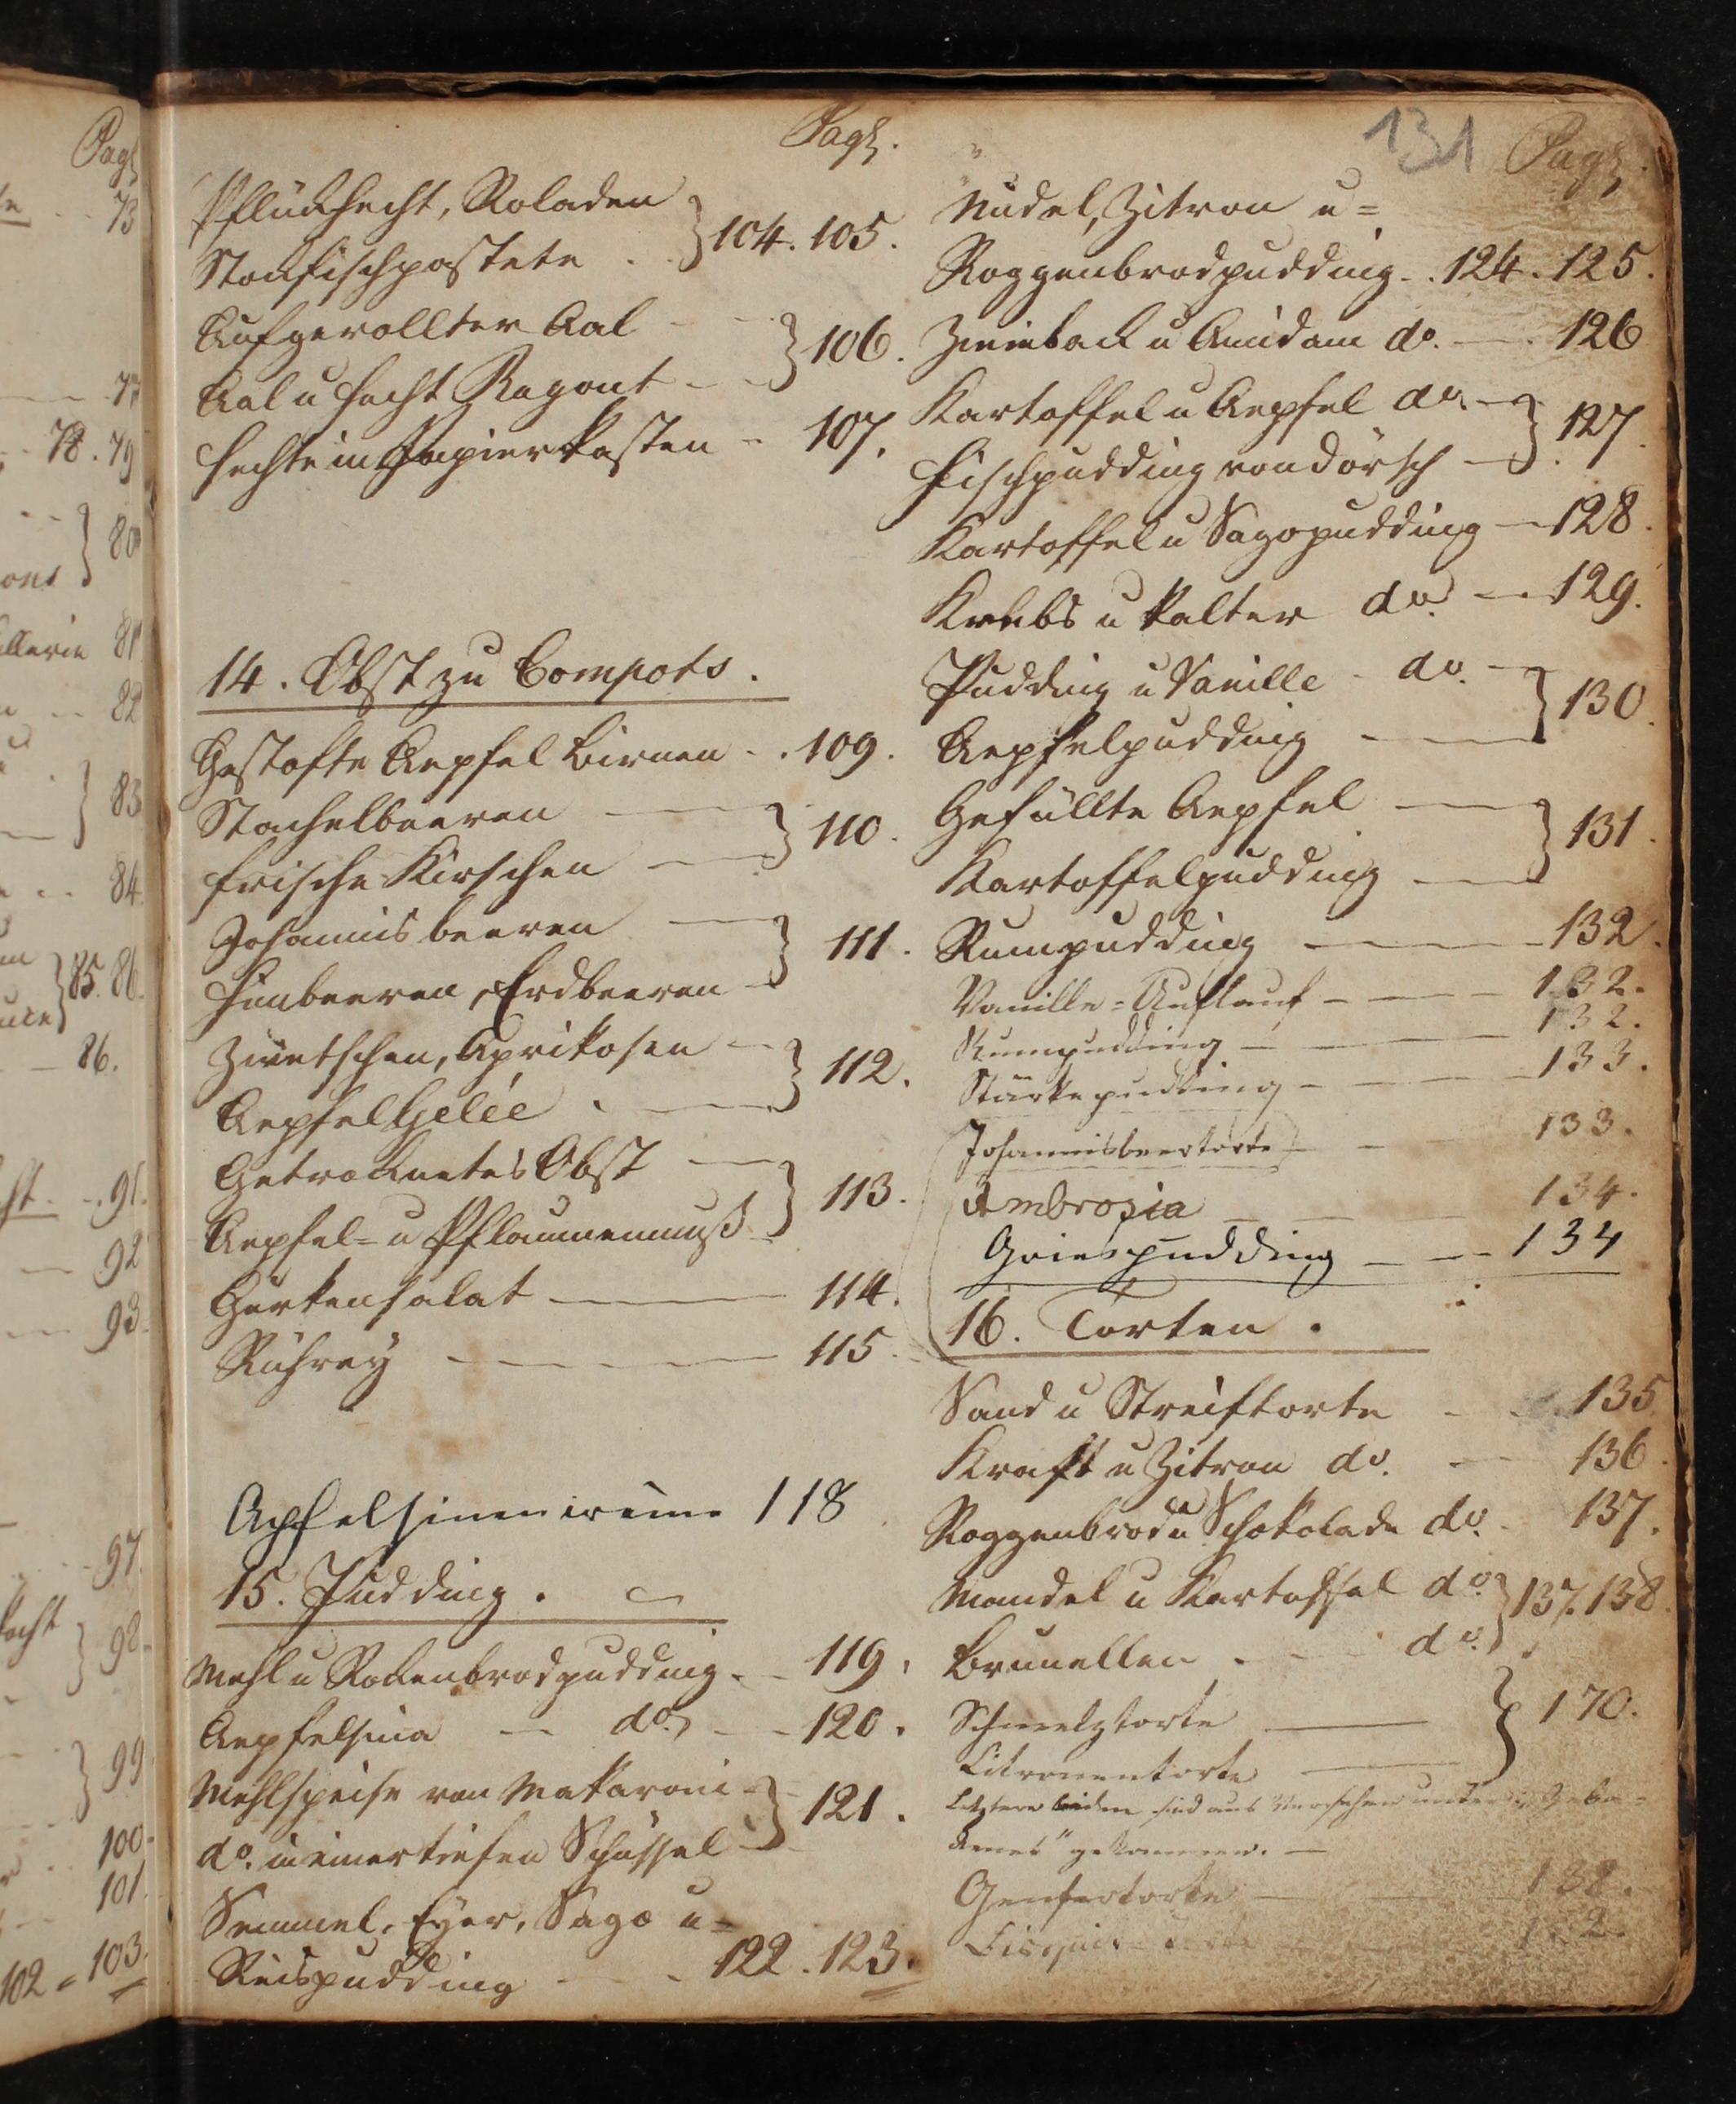 Pag.
Pflückhecht, Roladen
Stockfischpastete . . } 104. 105.
Aufgerollter Aal - -
Aal u Hecht Ragout - - } 106.
Hechte in Papierkasten - 107.
14. Obst zu Compots.
Gestofte Aepfel Birnen . . 109.
Stachelbeeren —
frische Kirschen — } 110.
Johannisbeeren —
Himbeeren, Erdbeeren - } 111.
Zwetschen, Aprikosen -
Aepfel Gelée . — } 112.
Getrocknetes Obst —
Aepfel- u Pflaumenmuß - } 113.
Gurkensalat — 114.
Rührey - — — 115.
Apfelsinencreme 118
15. Pudding.
Mehl u Rockenbrodpudding. - 119.
Aepfelsina — do. - - 120.
Mehlspeise von Makaroni -
do. in einer tiefen Schüssel - } 121.
Semmel, Eyer, Sago u =
Reispudding - - . 122. 123.
131
Pag.
Nudel, Zitron u =
Roggenbrodpudding. . 124. 125.
Zwieback u Amidam do. — . 126
Kartoffel u Aepfel do. —
Fischpudding von Dörsch — } 127.
Kartoffel u Sagopudding — 128.
Krebs u kalter do. — 129.
Pudding u Vanille - do. -
Aepfelpudding — } 130.
Gefüllte Aepfel —
Kartoffelpudding — } 131.
Rumpudding — 132.
Vanille = Auflauf - — 132.
Rumpudding — 132.
Stärkepudding - — 133.
Johannisbeertorte - 133.
Ambrosia — 134.
Griespudding — - 134
16. Torten.
Sand u Streiftorte - . 135
Kraft u Zitron do. — 136.
Roggenbrod u Schokolade do. 137.
Mandel u Kartoffel do. } 137. 138.
Brunellen . - - do.
Schmelztorte —
Citronentorte — } 170.
Letztere beiden sind aus Versehen unter "Geba=
ckenes" gekommen. —
Genfertorte — 138.